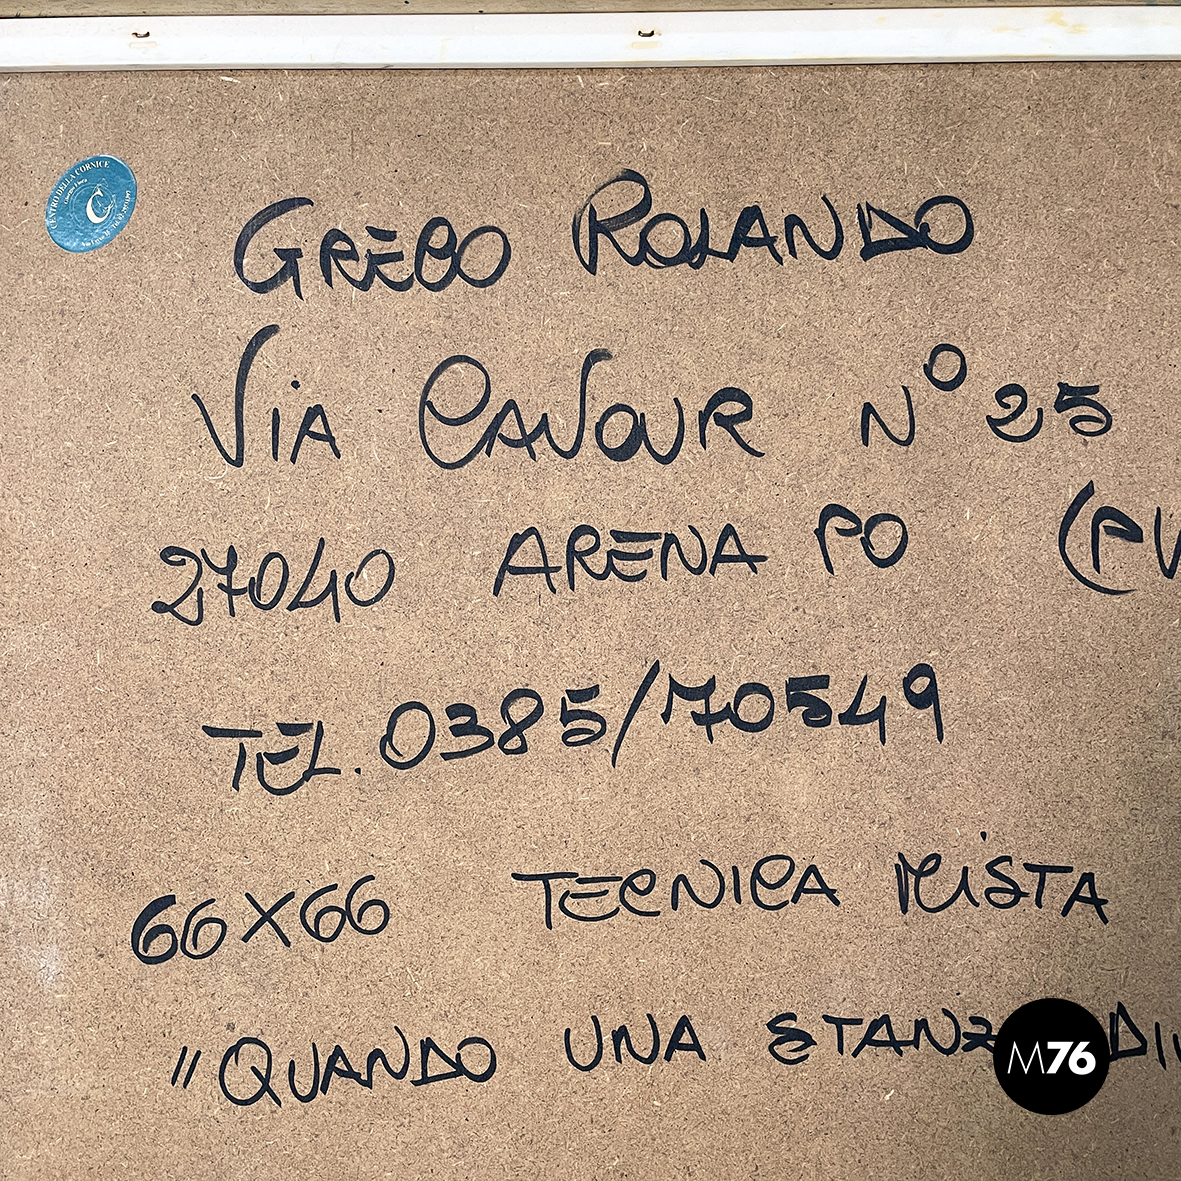 CENTRO DELLA CORNICE
C
GREBO ROLANDO
VIA CAVOUR N° 25
27040 ARENA PO (PV
TEL. 0385/70549
66X66 TECNICA MISTA
"QUANDO UNA STANZ
M76